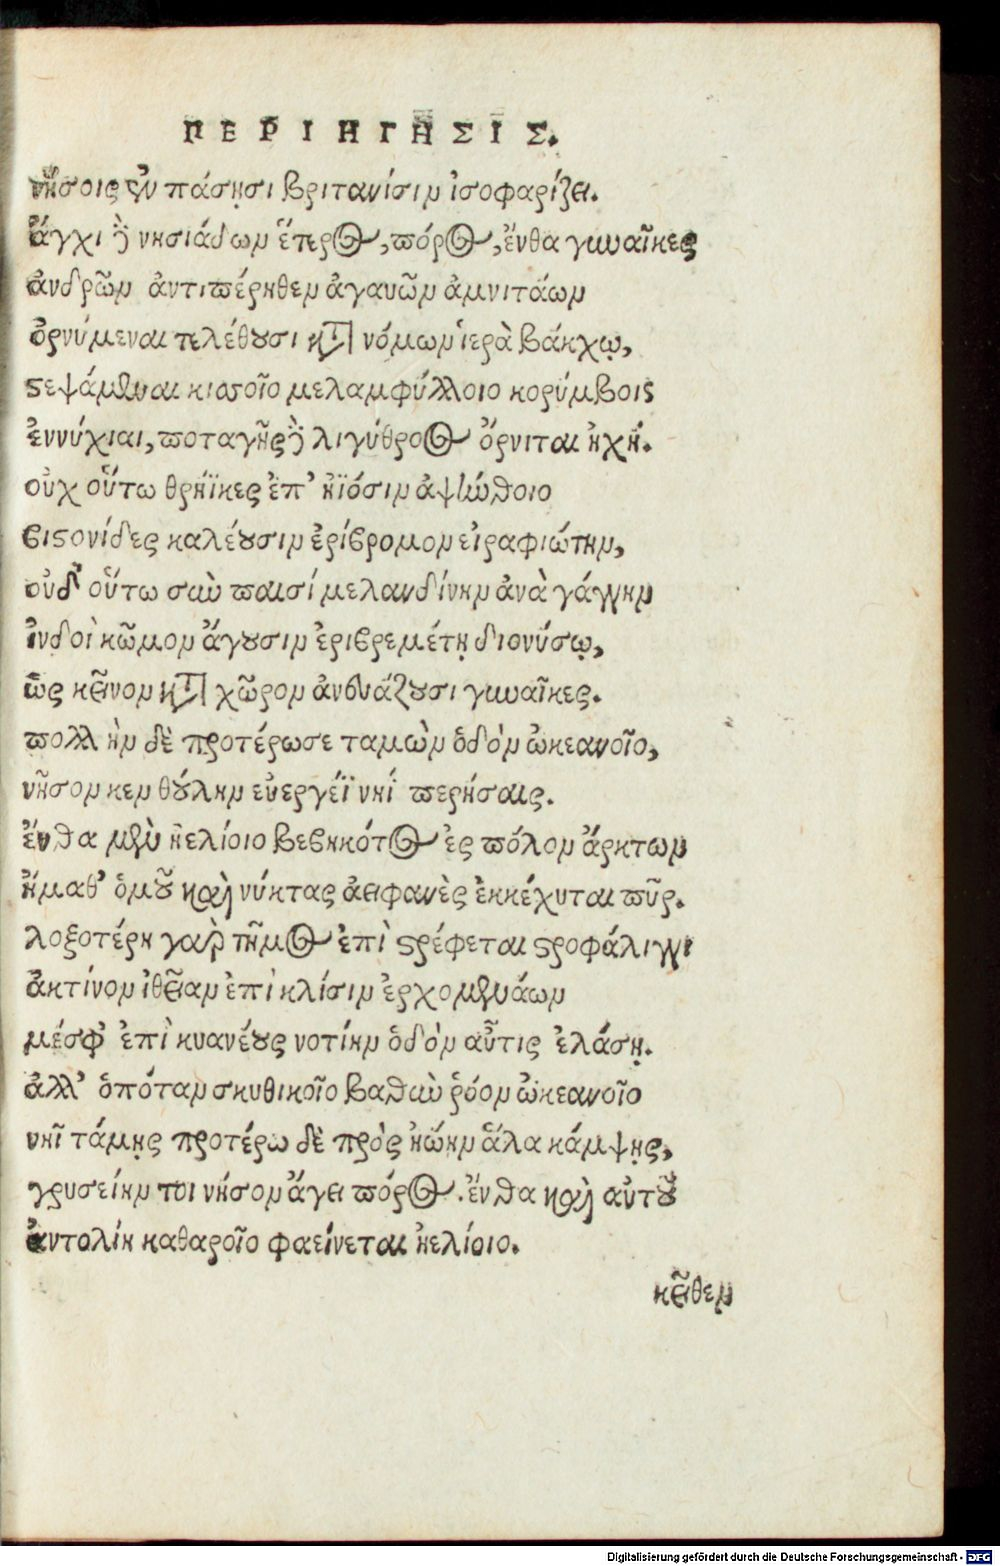 ΠΕΡΙΗΓΗΣΙΣ.
νήσοις ἐν πάσῃσι βριτανίσιν ἰσοφαρίζει.
ἄγχι δὲ νησιάδων ἕτερος, πόρος, ἔνθα γυναῖκες
ἀνδρῶν ἀντιπέρηθεν ἀγαυῶν ἀμνιτάων
ὀρνύμεναι τελέθουσι κατὰ νόμων ἱερὰ βάκχῳ,
στεψάμεναι κισσοῖο μελαμφύλλοιο κορύμβοις
ἐννύχιαι, παταγῆς δὲ λιγύθροος ὄρνιται ἠχή.
οὐχ οὕτω θρήϊκες ἐπ' ἠϊόσιν ἀψύνθοιο
βιστονίδες καλέουσιν ἐρίβρομον εἰραφιώτην,
οὐδ' οὕτω σὺν παισί μελανδίνην ἀνὰ γάγγην
ἰνδοὶ κῶμον ἄγουσιν ἐριβρεμέτῃ διονύσῳ,
ὡς κεῖνον κατὰ χῶρον ἀνευάζουσι γυναῖκες.
πολλὴν δὲ προτέρωσε ταμὼν ὁδὸν ὠκεανοῖο,
νῆσον κεν θούλην εὐεργέϊ νηΐ περήσαις.
ἔνθα μὲν ἠελίοιο βεβηκότος ἐς πόλον ἄρκτων
ἤμαθ' ὁμοῦ καὶ νύκτας ἀειφανὲς ἐκκέχυται πῦρ.
λοξοτέρη γαρ τῆμος ἐπὶ στρέφεται στροφάλιγγι
ἀκτίνον ἰθεῖαν ἐπὶ κλίσιν ἐρχομενάων
μέσφ' ἐπὶ κυανέους νοτίην ὁδὸν αὖτις ἐλάσῃ.
ἀλλ' ὁπόταν σκυθικοῖο βαθὺν ῥόον ὠκεανοῖο
νηῒ τάμῃς προτέρω δὲ πρὸς ἠώην ἅλα κάμψῃς,
χρυσείην τοι νῆσον ἄγει πόρος. ἔνθα καὶ αὐτοῦ
ἀντολίη καθαροῖο φαείνεται ἠελίοιο.
κεῖθεν
Digitalisierung gefördert durch die Deutsche Forschungsgemeinschaft - DFG